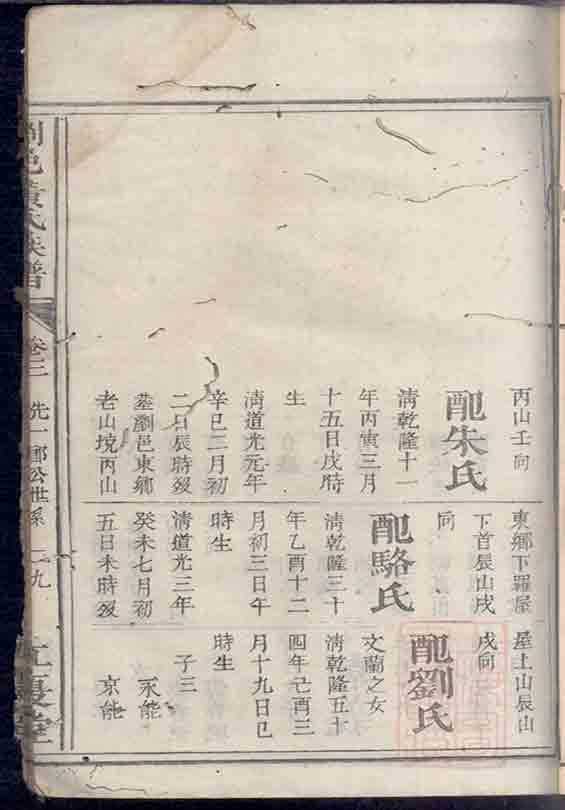 丙山壬向
配朱氏
清乾隆十一
年丙寅三月
十五日戌時
生
清道光元年
辛巳二月初
二日辰時歿
墓劉邑東鄉
老山境丙山
東鄉下羅屋
下首辰山戌
向
配駱氏
清乾隆三十
年乙酉十二
月初三日午
時生
清道光三年
癸未七月初
五日未時歿
屋上山辰山
戌向
配劉氏
文蘭之女
清乾隆五十
四年己酉三
月十九日巳
時生
子三
永能
京能
邑黃氏族譜
卷三
先一郎公世系
二九
江夏堂